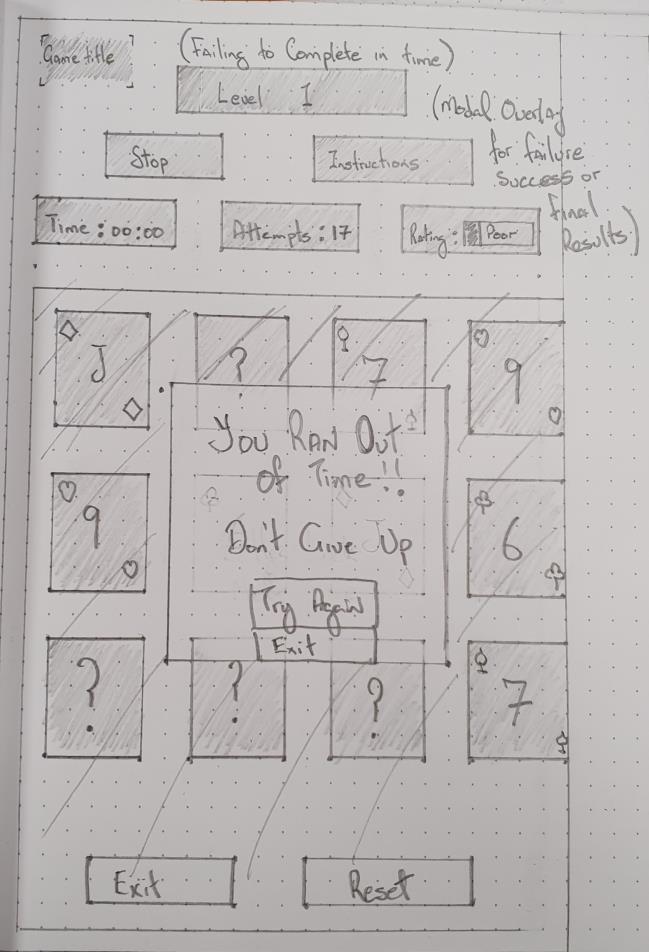 Game title
(Failing to Complete in time)
Level 1
(Modal Overlay
for failure
success or
final
Results)
Stop
Instructions
Time : 00:00
Attempts : 17
Rating : Poor
J
?
7
9
You Ran Out
of Time!!
Don't Give Up
Try Again
Exit
9
J
6
?
?
?
7
Exit
Reset